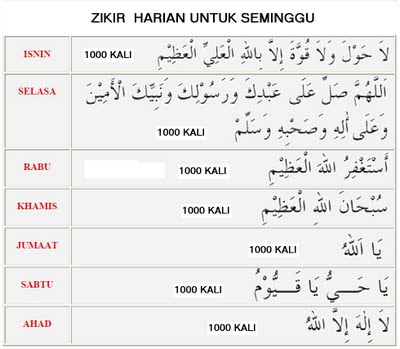 ZIKIR HARIAN UNTUK SEMINGGU
ISNIN 1000 KALI لَا حَوْلَ وَلَا قُوَّةَ إِلَّا بِاللهِ الْعَلِيِّ الْعَظِيْمِ
SELASA اَللَّهُمَّ صَلِّ عَلَى عَبْدِكَ وَرَسُوْلِكَ وَنَبِيِّكَ الْأَمِيْنَ
1000 KALI وَعَلَى أٰلِهِ وَصَحْبِهِ وَسَلِّمْ
RABU 1000 KALI أَسْتَغْفِرُ اللهَ الْعَظِيْمِ
KHAMIS 1000 KALI سُبْحَانَ اللهِ الْعَظِيْمِ
JUMAAT 1000 KALI يَا اَللهُ
SABTU 1000 KALI يَا حَـــيُّ يَا قَـــيُّوْمُ
AHAD 1000 KALI لَا إِلٰهَ إِلَّا اللهُ